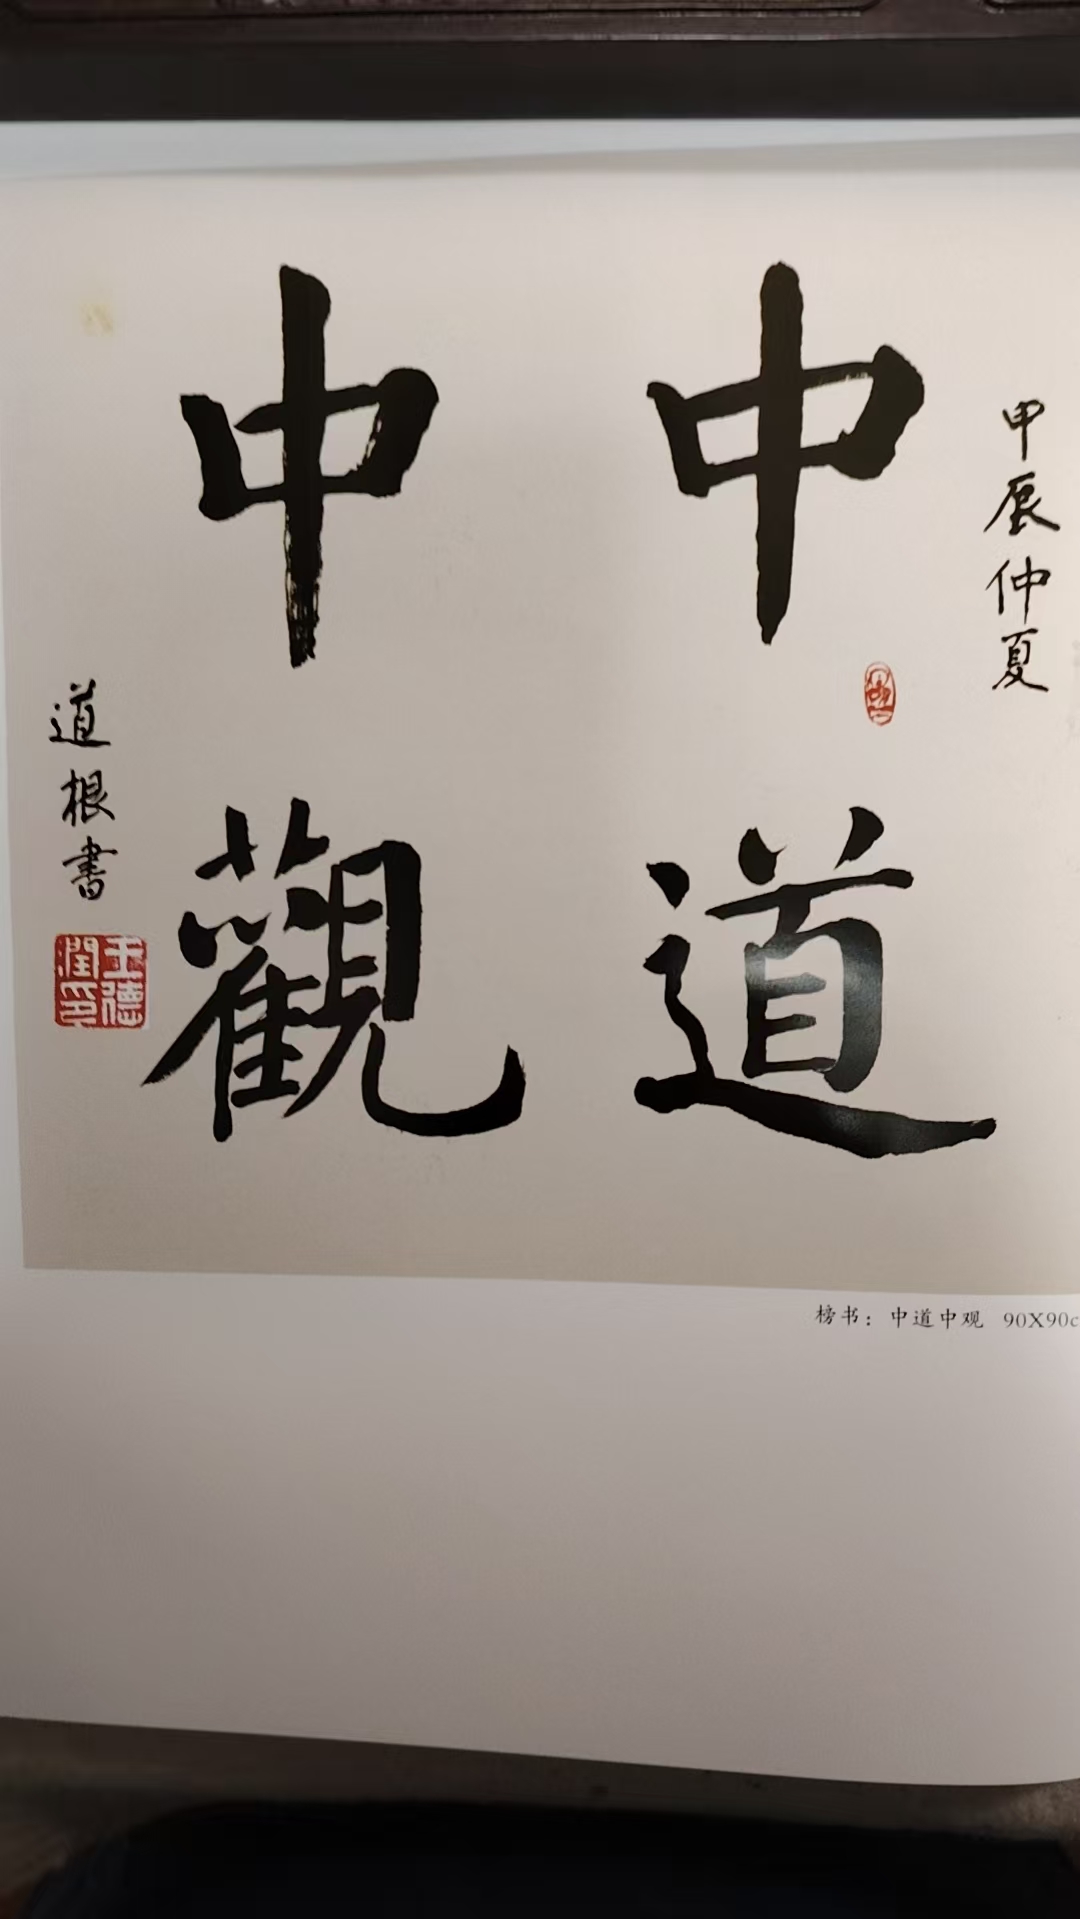 甲辰仲夏
中道
中觀
道根書
王德潤印
榜书：中道中观 90X90c